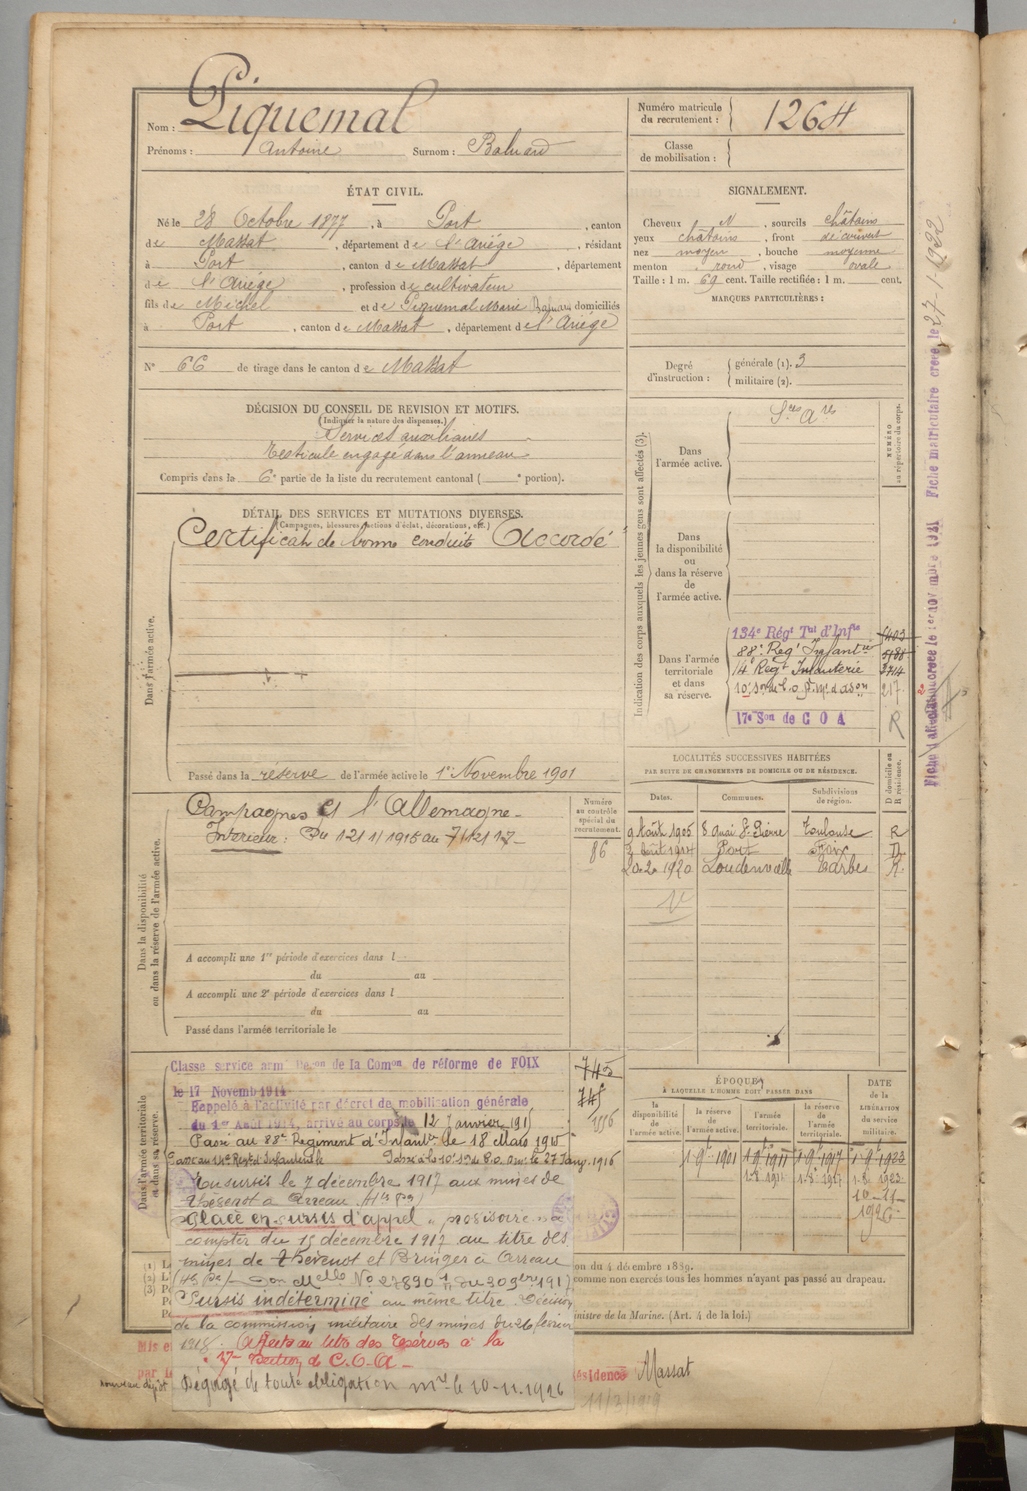 Nom : Piquemal
Prénoms : Antoine Surnom :
Numéro matricule du recrutement : 1264
Classe de mobilisation :
ÉTAT CIVIL.
Né le 28 Octobre 1877, à Port, canton
de Massat, département de l'Ariége, résidant
à Port, canton de Massat, département
de l'Ariége, profession de cultivateur
fils de Michel et de Piquemal Marie domiciliés
à Port, canton de Massat, département de l'Ariége
N° 66 de tirage dans le canton de Massat
SIGNALEMENT.
Cheveux N, sourcils châtains
yeux châtains, front découvert
nez moyen, bouche moyenne
menton rond, visage ovale
Taille : 1 m. 69 cent. Taille rectifiée : 1 m. cent.
MARQUES PARTICULIÈRES :
Degré d'instruction : générale (1). 3
militaire (2).
DÉCISION DU CONSEIL DE REVISION ET MOTIFS.
(Indiquer la nature des dispenses.)
Services auxiliaires
Testicule engagé dans l'anneau
Compris dans la 6e partie de la liste du recrutement cantonal ( e portion).
DÉTAIL DES SERVICES ET MUTATIONS DIVERSES.
(Campagnes, blessures, actions d'éclat, décorations, etc.)
Dans l'armée active.
Certificat de bonne conduite Accordé
Passé dans la réserve de l'armée active le 1er Novembre 1901
Indication des corps auxquels les jeunes gens sont affectés (3).
NUMÉRO au répertoire du corps.
Dans l'armée active.
Dans la disponibilité ou dans la réserve de l'armée active.
Dans l'armée territoriale et dans sa réserve.
134e Régt Tal d'Infie
88e Regt Infantie
14e Regt Infanterie 3714
217
17e Son de COA R
Dans la disponibilité ou dans la réserve de l'armée active.
Campagnes Ct l'Allemagne
Intérieur : Du 12 11 1915 au 7 12 17
A accompli une 1re période d'exercices dans l
du au
A accompli une 2e période d'exercices dans l
du au
Passé dans l'armée territoriale le
Numéro au contrôle spécial du recrutement.
86
LOCALITÉS SUCCESSIVES HABITÉES
PAR SUITE DE CHANGEMENTS DE DOMICILE OU DE RÉSIDENCE.
Dates. Communes. Subdivisions de région. D domicile ou R résidence.
9 Août 1905 8 quai St-Pierre Toulouse R
Août 1914 Port Foix D
20-2-1920 Loudenvielle Tarbes R
Dans l'armée territoriale et dans sa réserve.
Classé service armé Don de la Comon de réforme de FOIX
le 17 Novemb 1914
Rappelé à l'activité par décret de mobilisation générale
du 1er Août 1914, arrivé au corps le 12 Janvier 1915
Passé au 88e Régiment d'Infantie le 18 Mars 1915
Passé au 14e Regt d'Infanterie le
27 Janv. 1916
En sursis le 7 décembre 1917 aux mines de
Thévenot à Arreau
Placé en sursis d'appel "provisoire" à
compter du 15 décembre 1917 au titre des
mines de Thévenot et Bringer à Arreau
Sursis indéterminé au même titre. Décision
de la commission militaire des mines du 26 février
1918. Affecté au titre des Réserves à la
17e Section de C.O.A
Dégagé de toute obligation mre le 10-11-1926
745
745
ÉPOQUES
À LAQUELLE L'HOMME DOIT PASSER DANS
la disponibilité de l'armée active. la réserve de l'armée active. l'armée territoriale. la réserve de l'armée territoriale.
DATE de la LIBÉRATION du service militaire.
1 9bre 1901 1 9bre 1911 1 9bre 1917 1 9bre 1923
10-11-1926
on du 4 décembre 1889.
comme non exercés tous les hommes n'ayant pas passé au drapeau.
inistre de la Marine. (Art. 4 de la loi.)
Résidence Massat
11/3/1919
Fiche matriculaire créée le 27-1-1922